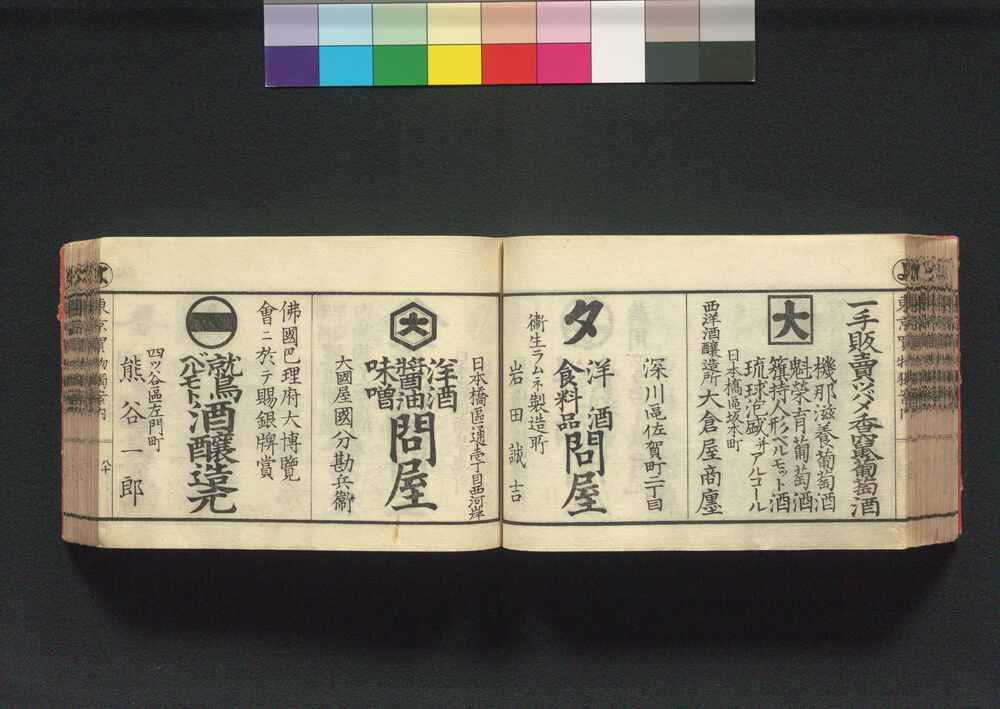 よ
一手販賣ツバメ香竄葡萄酒
大
機那滋養葡萄酒
魁榮育葡萄酒
籏持人形ベルモット酒
琉球泡盛并アルコール
日本橋區坂本町
西洋酒釀造所大倉屋商廛
深川區佐賀町二丁目
タ
洋酒
食料品
問屋
衛生ラムネ製造所
岩田誠吉
日本橋區通壱丁目西河岸
大
洋酒
醬油
味噌
問屋
大國屋國分勘兵衞
佛國巴理府大博覽
會ニ於テ賜銀牌賞
鷲
ベルモット
酒釀造元
四ッ谷區左門町
熊谷一郎
よ
東京買物獨案内
八十